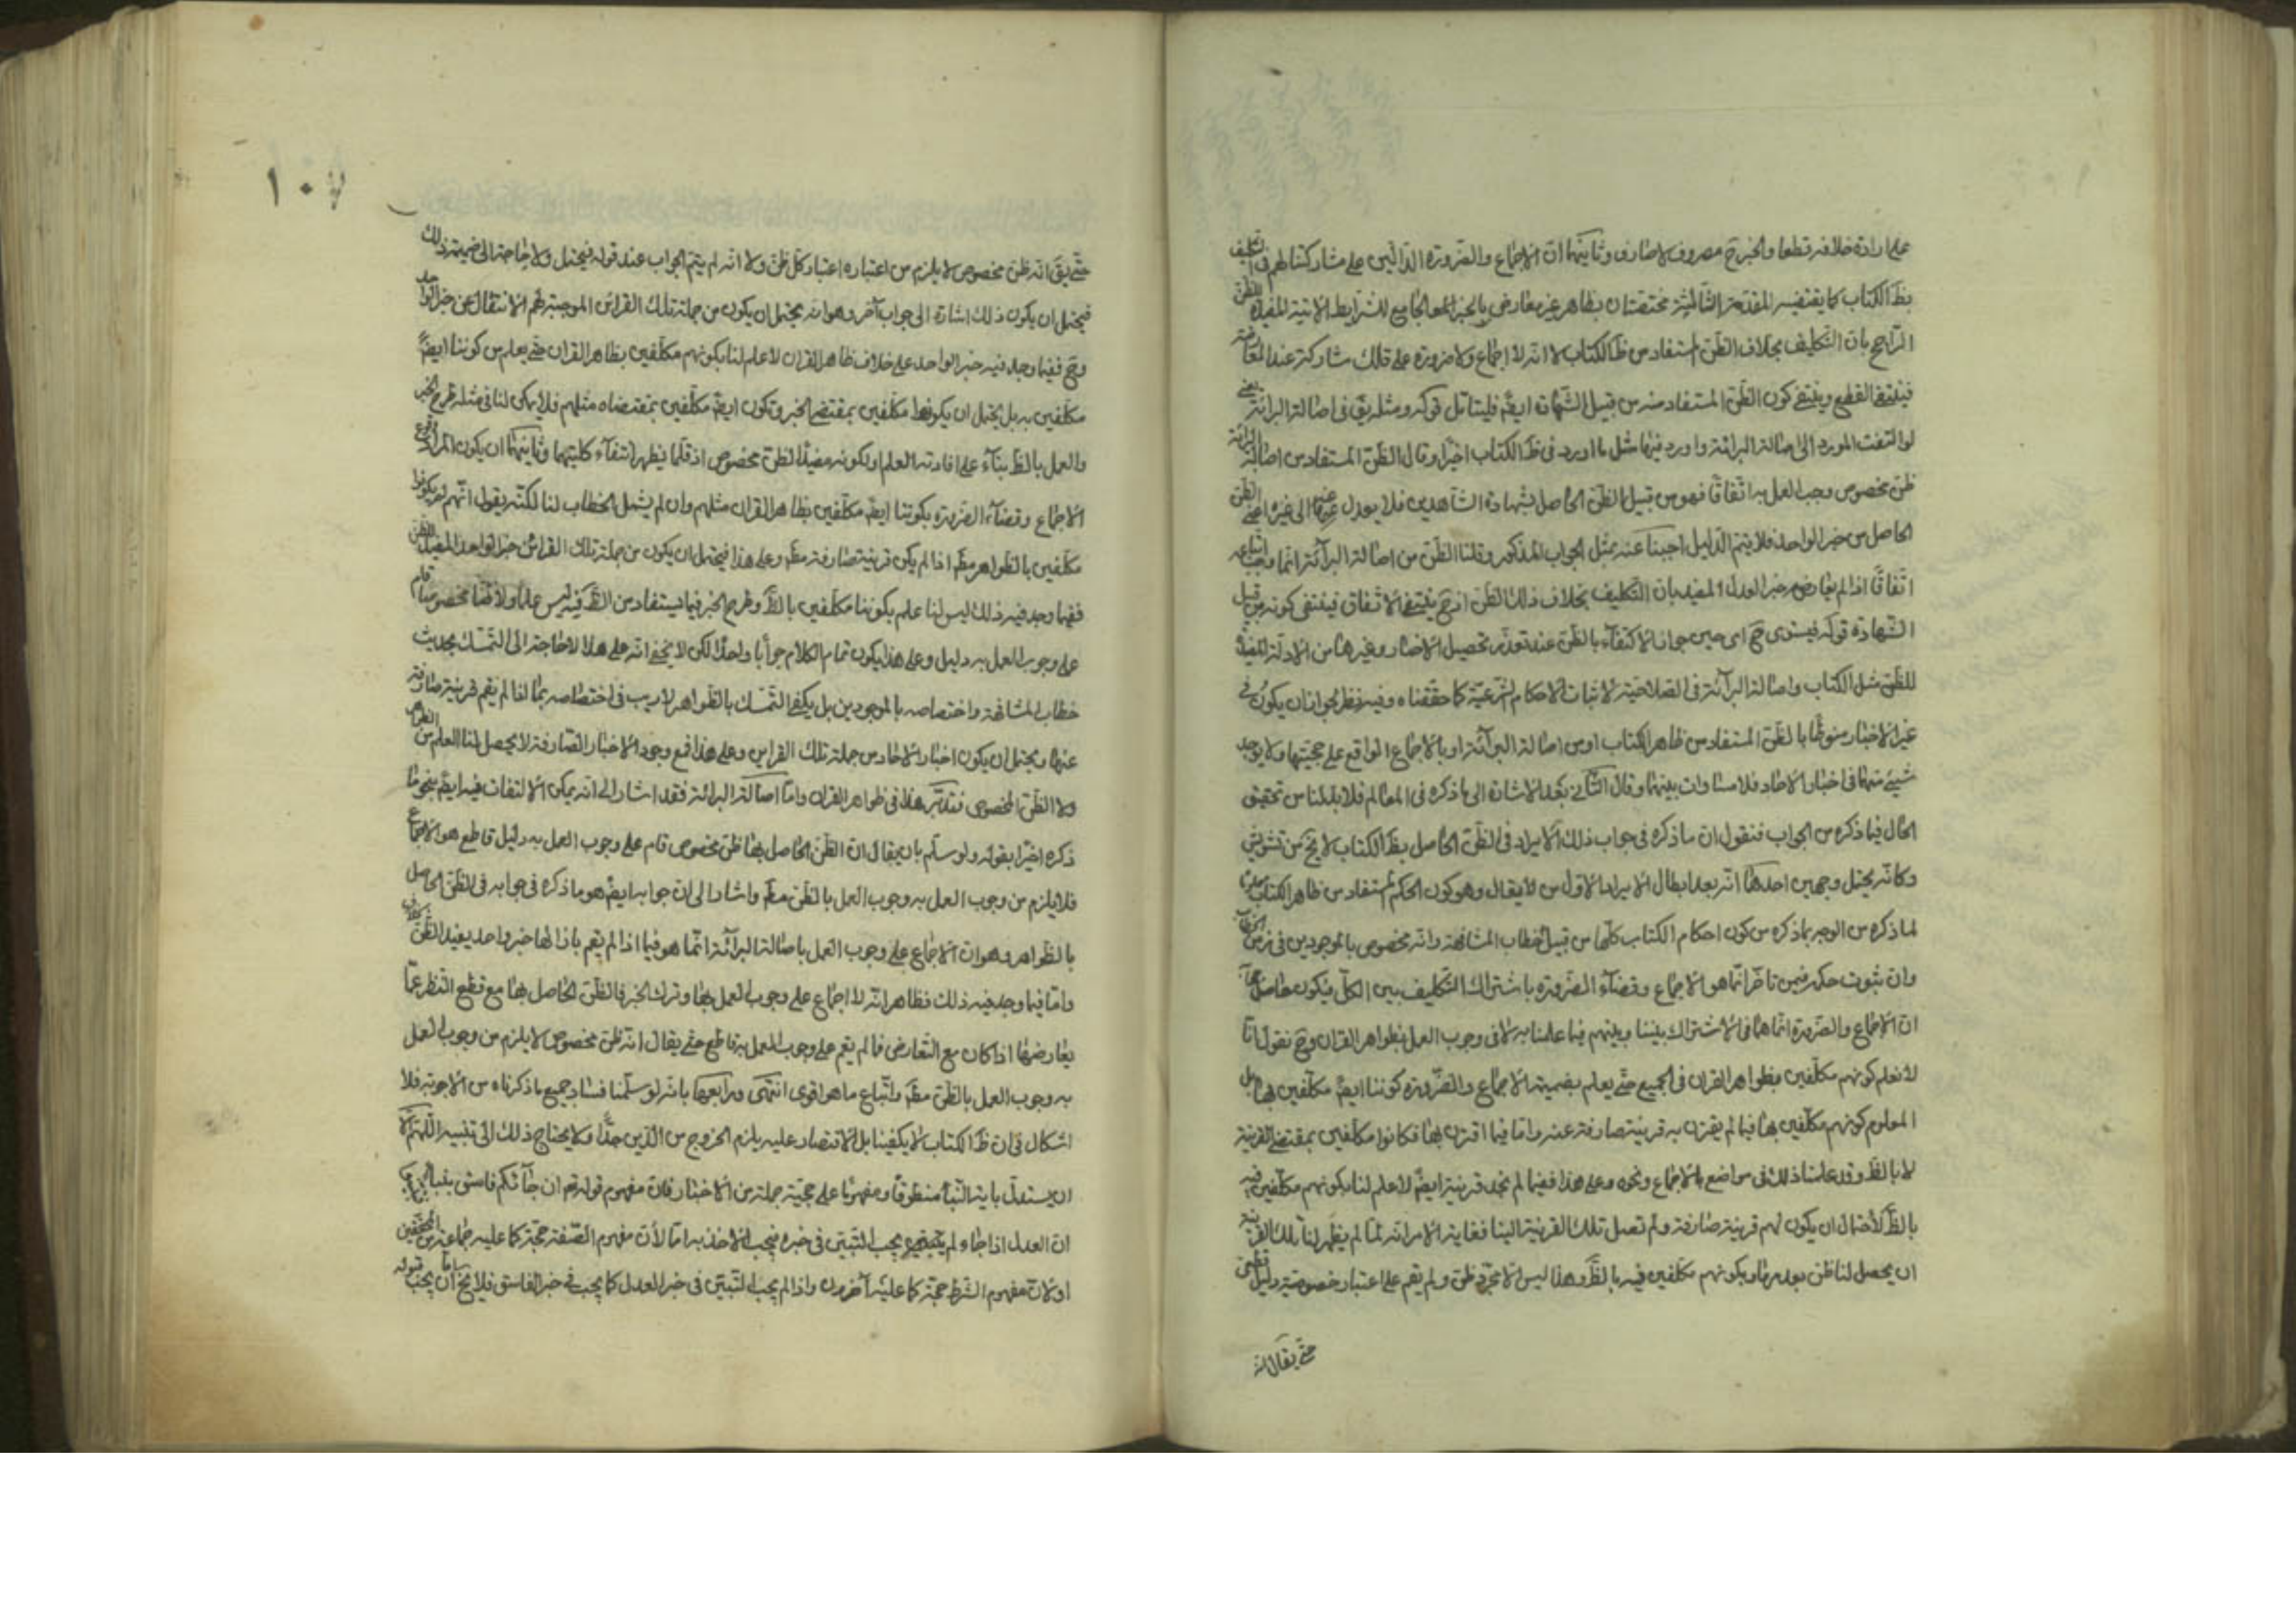 على ارادة خلافه قطعا والخبر ح مصروف لا صارف وثانيتهما ان الاجماع والضرورة الدالين على مشاركتنا لهم في التكليف
بظ الكتاب كما يقتضيه المقدمة الثالثة مختصتان بظاهر غير معارض بالخبر الجامع للشرايط الاتية المفيدة للظن
الراجح بان التكليف بخلاف الظن المستفاد من ظ الكتاب لا انه لا اجماع ولا ضرورة على تلك مشاركته عند المعارضة
فينتفى القطع وينتفى كون الظن المستفاد منه من قبيل الشهادة ايضا فليتامل قوله ومثله يق في اصالة البرائة يعني
لو التفت المورد الى اصالة البرائة واورد فيها مثل ما اورد في ظ الكتاب اخيرا وقال الظن المستفاد من اصالة البرائة
ظن مخصوص وجب العمل به اتفاقا فهو من قبيل الظن الحاصل بشهادة الشاهدين فلا يعدل عنه الى غيره اعني الظن
الحاصل من خبر الواحد فلا يتم الدليل اجبنا عنه بمثل الجواب المذكور وقلنا الظن من اصالة البرائة انما وجب اتباعه
اتفاقا اذا لم يعارضه خبر العدل المفيد بان التكليف بخلاف ذلك الظن اذ ح ينتفى الاتفاق فينتفى كونه من قبيل
الشهادة قوله فيستوى ح اى حين جواز الاكتفاء بالظن عند تعذر تحصيل الاخبار وغيرها من الادلة المفيدة
للظن مثل الكتاب واصالة البرائة في الصلاحية لاثبات الاحكام الشرعية كما حققناه وفيه نظر لجواز ان يكون في
غير الاخبار منوطا بالظن المستفاد من ظاهر الكتاب او من اصالة البرائة او بالاجماع الواقع على حجيتها ولا يوجد
شيئ منهما في اخبار الاحاد فلا مساوات بينهما وقال بعد الاشارة الى ما ذكره في المعالم فلا بد لنا من تحقيق
الحال فيما ذكره من الجواب فنقول ان ما ذكره في جواب ذلك الايراد في الظن الحاصل بظ الكتاب لا يخ من تشويش
وكانه يحتمل وجهين احدهما انه بعد ابطال الايراد الاول من لا يقال وهو كون الحكم المستفاد من ظاهر الكتاب معلوما
لما ذكره من الوجه بما ذكره من كون احكام الكتاب كلها من قبيل خطاب المشافهة وانه مخصوص بالموجودين في زمن الخطاب
وان ثبوت حكمه فيمن تاخر انما هو الاجماع وقضاء الضرورة باشتراك التكليف بين الكل فيكون حاصل
ان الاجماع والضرورة انما هما في الاشتراك بيننا وبينهم فيما علمنا به لا في وجوب العمل بظواهر القران وح نقول انا
لا نعلم كونهم مكلفين بظواهر القران في الجميع حتى يعلم بضميمة الاجماع والضرورة كوننا ايضا مكلفين بها بل
المعلوم كونهم مكلفين بها فيما لم يقترن به قرينة صارفة عنه واما فيما اقترن بها فكانوا مكلفين بمقتضى القرينة
لا بالظ وقد علمنا ذلك في مواضع بالاجماع ونحوه وعلى هذا ففيما لم نجد قرينة ايضا لا علم لنا بكونهم مكلفين فيه
بالظ لاحتمال ان يكون لهم قرينة صارفة ولم تصل تلك القرينة الينا فغاية الامر انه لما لم يظهر لنا تلك القرينة
ان يحصل لنا ظن بعدمها وبكونهم مكلفين فيه بالظ وهذا ليس الا مجرد ظن ولم يقم على اعتبار خصوصيته دليل قطعى
حتى يقال انه
١٠٧
حتى يق انه ظن مخصوص لا يلزم من اعتباره اعتبار كل ظن ولا انه لم يتم الجواب عند قوله فيحتمل ولا حاجة الى ضميمة ذلك
فيحتمل ان يكون ذلك اشارة الى جواب آخر وهو انه يحتمل ان يكون من جملة تلك القرائن الموجبة لهم الانتقال عن خبر الواحد
وح ففيما وجد فيه خبر الواحد على خلاف ظاهر القران لا علم لنا بكونهم مكلفين بظاهر القران حتى يعلم من كوننا ايضا
مكلفين به بل يحتمل ان يكونوا مكلفين بمقتضى الخبر ونكون ايضا مكلفين بمقتضاه مثلهم فلا يمكن لنا في مثله طرح الخبر
والعمل بالظ بناء على افادته العلم او لكونه مفيدا لظن مخصوص اذ قلما يظهر انتفاء كليتهما وثانيهما ان يكون المراد وقوع
الاجماع وقضاء الضرورة بكوننا ايضا مكلفين بظاهر القران مثلهم وان لم يشمل الخطاب لنا لكنه يقول انهم لم يكونوا
مكلفين بالظواهر مط اذا لم يكن قرينة صارفة مط وعلى هذا فيحتمل ان يكون من جملة تلك القرائن خبر الواحد المفيد للظن
ففيما وجد فيه ذلك ليس لنا علم بكوننا مكلفين بالظ وطرح الخبر فيما يستفاد من الظ فيه ليس علما ولا ظنا مخصوصا قام
على وجوب العمل به دليل وعلى هذا يكون تمام الكلام جوابا واحدا لكن لا يخفى انه على هذا لا حاجة الى التمسك بحديث
خطاب المشافهة واختصاصه بالموجودين بل يكفى التمسك بالظواهر لا ريب في اختصاصه بما اذا لم يقم قرينة صارفة
عنها ويحتمل ان يكون اخبار الاحاد من جملة تلك القراين وعلى هذا فمع وجود الاخبار الصارفة لا يحصل لنا العلم من الظواهر
ولا الظن المخصوص فتدبر هذا في ظواهر القران واما اصالة البرائة فقد اشار الى انه يمكن الالتفات فيه ايضا بنحو ما
ذكره اخيرا بقوله ولو سلم بان يقال ان الظن الحاصل بها ظن مخصوص قام على وجوب العمل به دليل قاطع هو الاجماع
فلا يلزم من وجوب العمل به وجوب العمل بالظن مط واشار الى ان جوابه ايضا هو ما ذكره في جوابه في الظن الحاصل
بالظواهر وهو ان الاجماع على وجوب العمل باصالة البرائة انما هو فيما اذا لم يقم بازائها خبر واحد يفيد الظن
واما فيما وجد فيه ذلك فظاهر انه لا اجماع على وجوب العمل بها وترك الخبر فالظن الحاصل بها مع قطع النظر عما
يعارضها اذا كان مع التعارض فما لم يقم على وجوب العمل به قاطع حتى يقال انه ظن مخصوص لا يلزم من وجوب العمل
به وجوب العمل بالظن مط واتباع ما هو اقوى انتهى ورابعها بانه لو سلمنا فساد جميع ما ذكرناه من الاجوبة فلا
اشكال في ان ظ الكتاب لا يكفينا بل الاقتصار عليه يلزم الخروج من الدين جدا ولا يحتاج ذلك الى تنبيه اللهم الا
ان يستدل باية النبأ منطوقا ومفهوما على حجية جملة من الاخبار فان مفهوم قوله تع ان جائكم فاسق بنبأ
ان العدل اذا جاء لم يجب التبين في خبره فيجب الاخذ به اما لأن مفهوم الصفة حجة كما عليه جماعة من المحققين
او لان مفهوم الشرط حجة كما عليه آخرون واذا لم يجب التبين في خبر العدل كما يجب في خبر الفاسق فلا يخ اما ان يجب قبوله